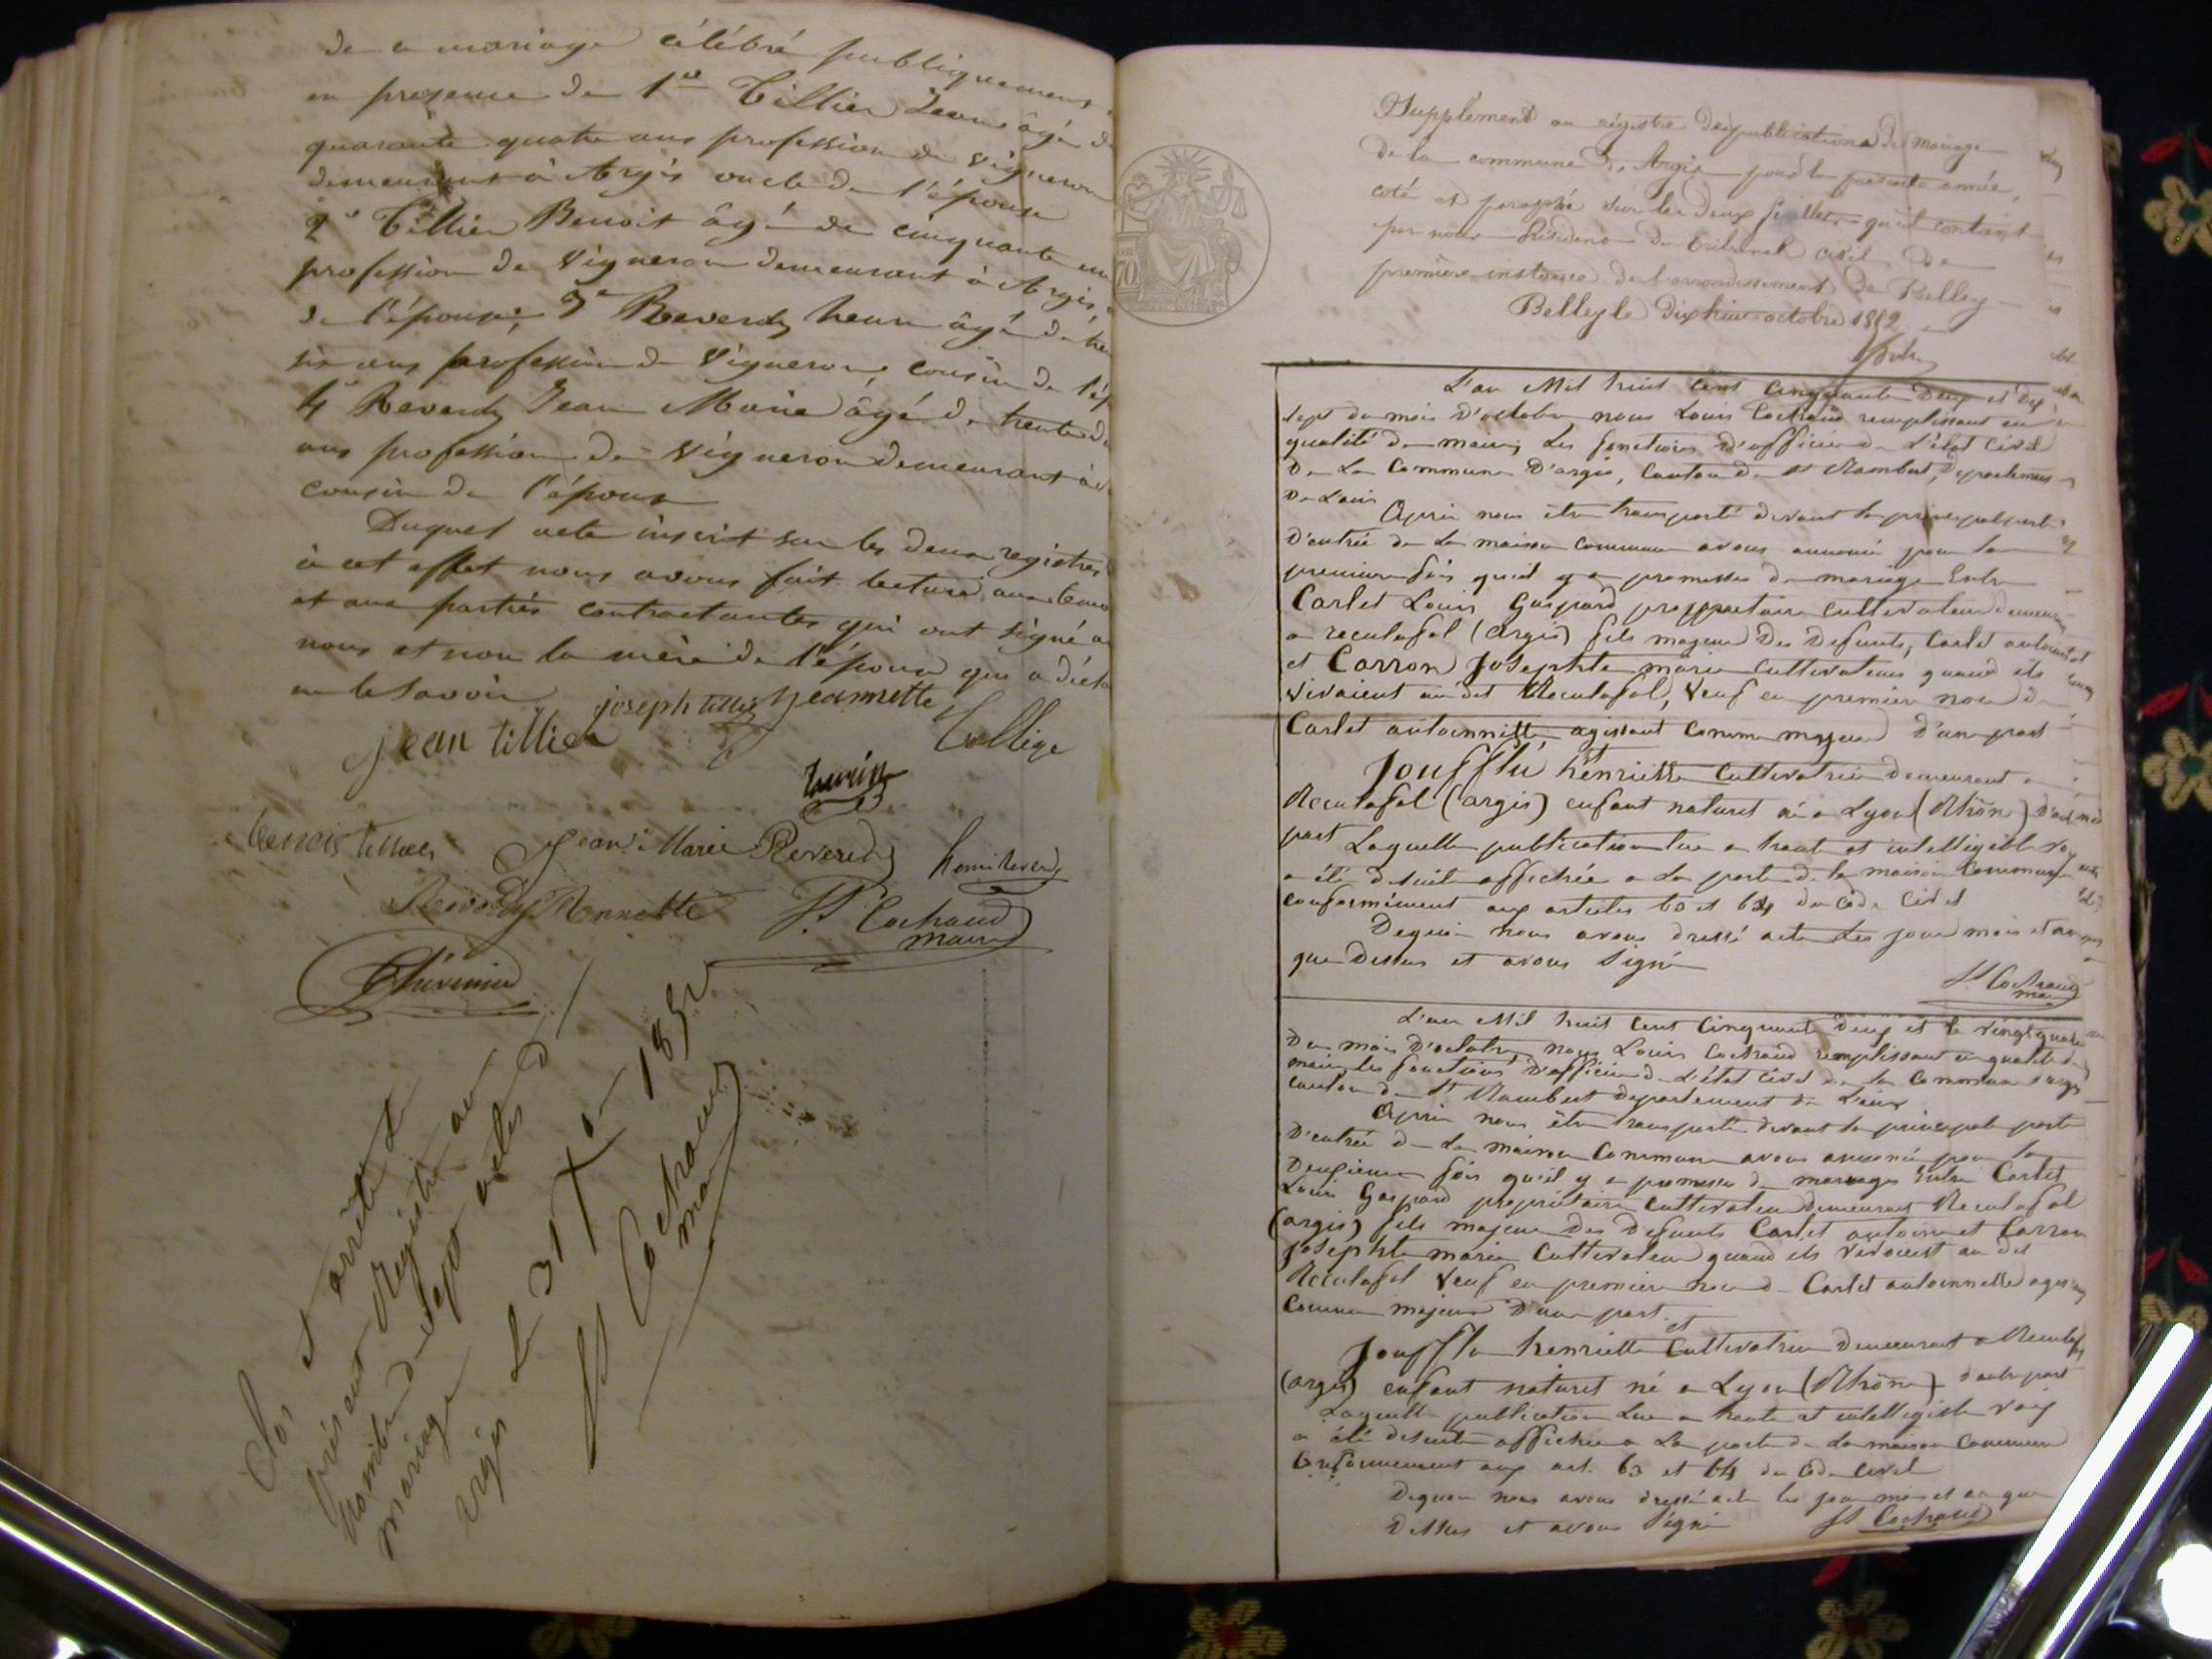 de ce mariage célébré publiquement
en presence de 1er Tillier Jean âgé de
quarante quatre ans profession de vigneron
demeurant à Argis oncle de l'épouse
2e Tillier Benoit âgé de cinquante un
profession de vigneron demeurant à Argis,
de l'épouse, 3e Reverdy henri âgé de
six ans profession de vigneron, cousin de l'ép
4e Reverdy Jean Marie âgé de trente d
ans profession de vigneron demeurant à
cousin de l'époux
Duquel acte inscrit sur les deux registres
à cet effet nous avons fait lecture aux temo
et aux parties contractantes qui ont signé a
nous et non la mère de l'époux qui a décla
ne le savoir
joseph tillier jeannette
jean tillier
benois tillier
Jean Marie Reverdy
henri Reverdy
Reverdy Annette
Ls Cochraud
maire
Clos et arrêté le
présent Registre au
nombre de sept actes de
mariage
argis le 31 Xbre 1852
Ls Cochraud
maire
Supplément au régistre des publications de mariage
de la commune d'Argis pour la présente année,
coté et paraphé sur les deux feuillets qu'il contient
par nous Président du tribunal civil de
première instance de l'arrondissement de Belley
Belley le dix huit octobre 1852
L'an Mil huit cent cinquante deux et dix
sept du mois d'octobre nous Louis Cochraud remplissant en
qualité de maire, les fonctions d'officier de L'état Civil
De La Commune D'argis, Canton de St Rambert, Departement
De L'ain
Après nous être transporté devant la principale porte
D'entrée de La maison commune avons annoncé pour la
premiere fois qu'il y a promesses de mariage Entre
Carlet Louis Gaspard proppriétaire cultivateur demeurant
a reculafol (argis) fils majeur Des Defunts, Carlet antoine
et Carron Josephte marie cultivateurs quand ils
vivaient au dit Reculafol, Veuf en premier noce de
Carlet antoinnette agissant comme majeur D'une part
et
Joufflu henriette Cultivatrice demeurant a
Reculafol (argis) enfant naturel né a Lyon (Rhône) D'autre
part Laquelle publication lue a haute et intelligible voix
a été desuite affichée a La porte de la maison Commune
conformément aux articles 63 et 64 du code Civil
Dequoi nous avons dressé acte Les jour mois et an
que Dessus et avons Signé
Ls Cochraud
maire
L'an Mil huit Cent Cinquante Deux et le vingt quatre
Du mois D'octobre, nous Louis Cochraud remplissant en qualité de
maire, les fonctions D'officier de L'état Civil de la Commune d'argis
canton de St Rambert departement de L'ain
Après nous être transporté devant la principale porte
D'entrée de La maison Commune avons annoncé pour la
Deuxieme fois qu'il y a promesse de mariages Entre Carlet
Louis Gaspard propriétaire Cultivateur Demeurant Reculafol
(argis) fils majeur Des Defunts Carlet antoine et Carron
Josephte marie Cultivateur quand ils vivaient au dit
Reculafol Veuf en premier noce de Carlet antoinnette agissant
Comme majeur D'une part
et
Joufflu henriette Cultivatrice Demeurant a Reculafol
(argis) enfant naturel né a Lyon (Rhône) d'autre part
Laquelle publication Lue a haute et intelligible voix
a été desuite affichée a La porte de la maison Commune
Conformement aux art. 63 et 64 du Code Civil
Dequoi nous avons dressé acte les jour mois et an que
Dessus et avons Signé
Ls Cochraud